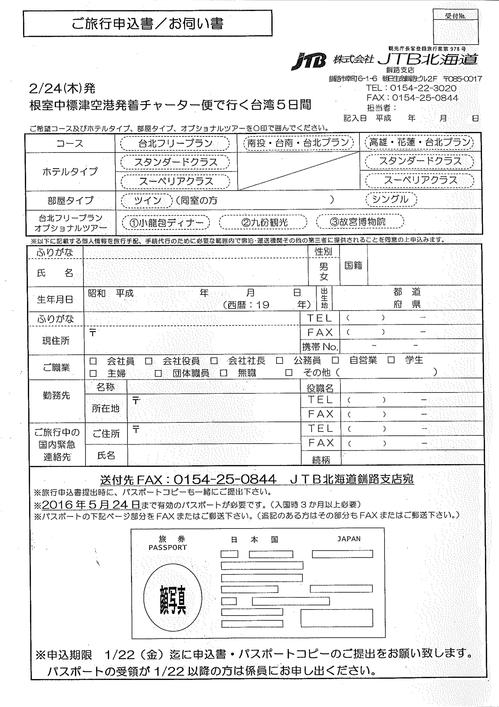 ご旅行申込書/お伺い書
受付No.
観光庁長官登録旅行業第978号
JTB 株式会社JTB北海道
釧路支店
2/24(木)発
TEL:0154-22-3020
FAX:0154-25-0844
根室中標津空港発着チャーター便で行く台湾5日間
担当者:
記入日 平成 年 月 日
ご希望コース及びホテルタイプ、部屋タイプ、オプショナルツアーを○印で囲んでください。
コース 台北フリープラン 南投・台南・台北プラン 高雄・花蓮・台北プラン
ホテルタイプ スタンダードクラス スタンダードクラス
スーペリアクラス スーペリアクラス
部屋タイプ ツイン (同室の方 ) シングル
台北フリープラン
オプショナルツアー ①小龍包ディナー ②九份観光 ③故宮博物院
※以下に記載する個人情報を旅行手配、手続代行のために必要な範囲内で運送・宿泊機関その他の第三者に提供されることを同意の上申込みます。
ふりがな 性別 国籍
氏 名 男 女
生年月日 昭和 平成 年 月 日 (西暦:19 年) 出生地 都 道 府 県
ふりがな TEL ( ) -
現住所 〒 FAX ( ) -
携帯No. - -
ご職業 □ 会社員 □ 会社役員 □ 会社社長 □ 公務員 □ 自営業 □ 学生
□ 主婦 □ 団体職員 □ 無職 □ その他( )
勤務先 名称 役職名
所在地 〒 TEL ( ) -
FAX ( ) -
ご旅行中の国内緊急連絡先 ご住所 〒 TEL ( ) -
FAX ( ) -
氏名 続柄
送付先FAX:0154-25-0844 JTB北海道釧路支店宛
※旅行申込書提出時に、パスポートコピーも一緒にご提出下さい。
※2016年5月24日まで有効のパスポートが必要です。(入国時3か月以上必要)
※パスポートの下記ページ部分をFAXまたはご郵送下さい。(追記のある方はその部分もFAXまたはご郵送下さい。)
旅 券 日 本 国 JAPAN
PASSPORT
顔写真
※申込期限 1/22(金)迄に申込書・パスポートコピーのご提出をお願い致します。
パスポートの受領が1/22以降の方は係員にお申し出ください。